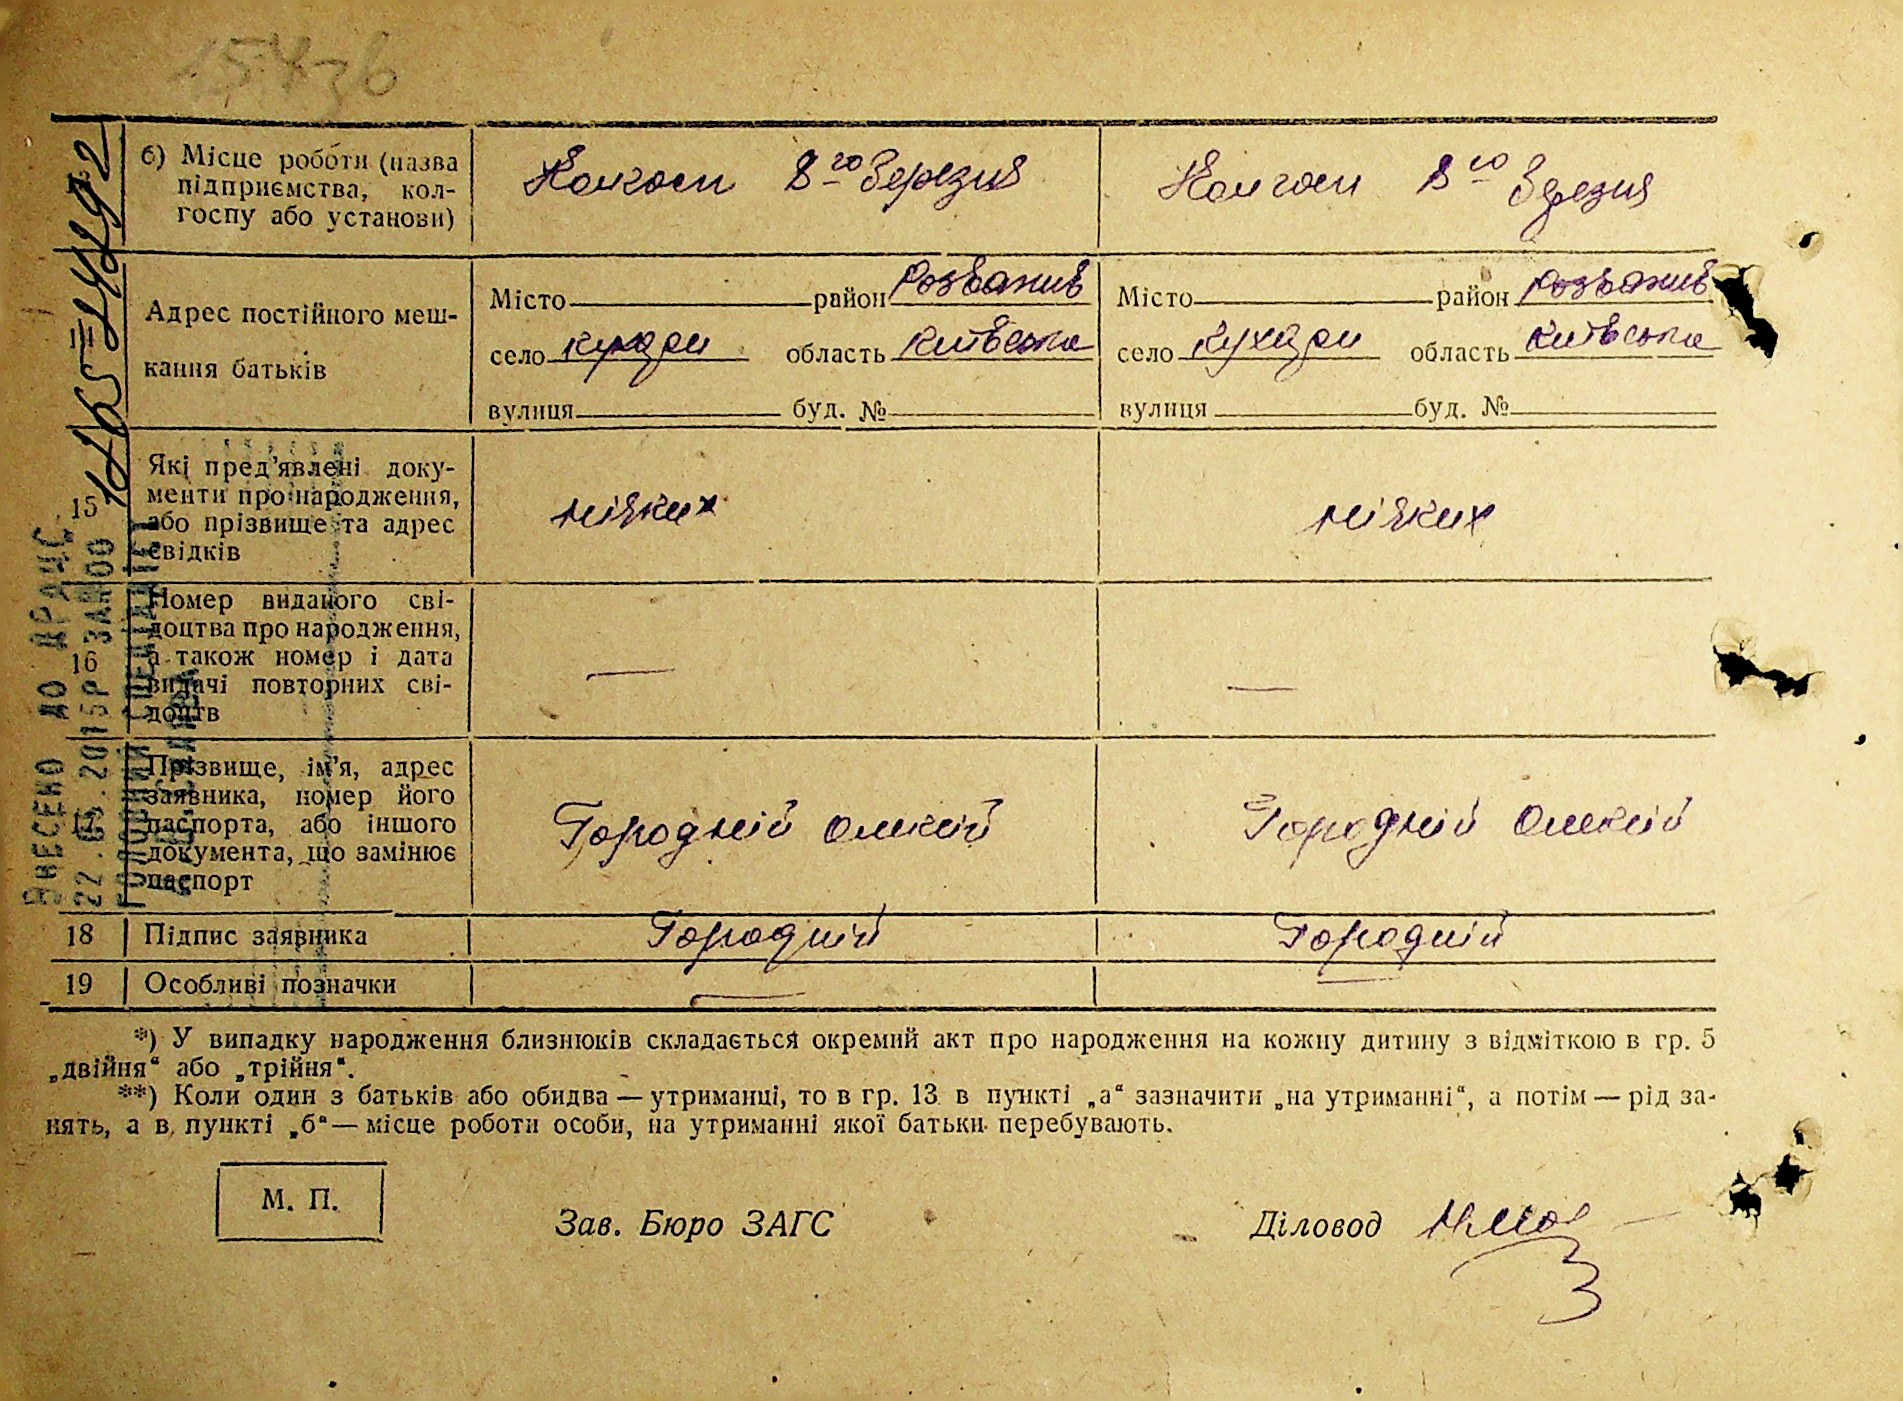 б) Місце роботи (назва
підприємства, кол-
госпу або установи)
Колгосп 8го Березня
Колгосп 8го Березня
Адрес постійного меш-
кання батьків
Місто район Розважив
село Кухари область Київська
вулиця буд. №
Місто район Розважив
село Кухари область Київська
вулиця буд. №
15
Які пред'явлені доку-
менти про народження,
або прізвище та адрес
свідків
ніяких
ніяких
16
Номер виданого сві-
доцтва про народження,
а також номер і дата
видачі повторних сві-
доцтв
—
—
17
Прізвище, ім'я, адрес
заявника, номер його
паспорта, або іншого
документа, що замінює
паспорт
Городній Олексій
Городній Олексій
18 Підпис заявника
Городній
Городній
19 Особливі позначки
—
—
ВНЕСЕНО ДО ДРАЦС
ГОЛОВНИЙ СПЕЦІАЛІСТ
*) У випадку народження близнюків складається окремий акт про народження на кожну дитину з відміткою в гр. 5
„двійня“ або „трійня“.
**) Коли один з батьків або обидва — утриманці, то в гр. 13 в пункті „а“ зазначити „на утриманні“, а потім — рід за-
нять, а в пункті „б“ — місце роботи особи, на утриманні якої батьки перебувають.
М. П.
Зав. Бюро ЗАГС
Діловод